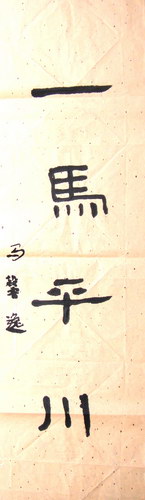 一馬平川
马
逸